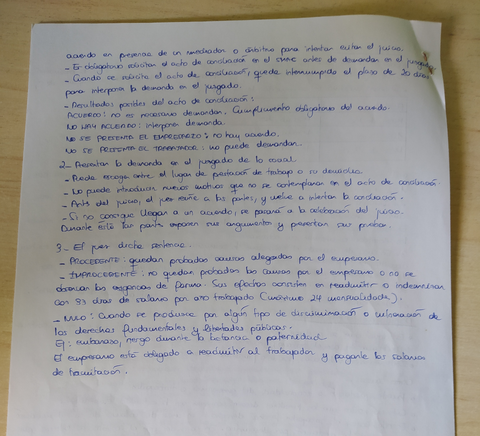 acuerdo en presencia de un mediador o árbitro para intentar evitar el juicio.
- Es obligatorio solicitar el acto de conciliación en el SMAC antes de demandar en el juzgado.
- Cuando se solicita el acto de conciliación, queda interrumpido el plazo de 20 días
para interponer la demanda en el juzgado.
- Resultados posibles del acto de conciliación:
ACUERDO: no es necesario demandar. Cumplimiento obligatorio del acuerdo.
NO HAY ACUERDO: interponer demanda.
NO SE PRESENTA EL EMPRESARIO: no hay acuerdo.
NO SE PRESENTA EL TRABAJADOR: no puede demandar.
2- Presentar la demanda en el juzgado de lo social
- Puede escoger entre el lugar de prestación de trabajo o su domicilio.
- No puede introducir nuevos motivos que no se contemplaran en el acto de conciliación.
- Antes del juicio, el juez reúne a las partes, y vuelve a intentar la conciliación.
- Si no consigue llegar a un acuerdo, se pasará a la celebración del juicio.
Durante éste las partes exponen sus argumentos y presentan sus pruebas.
3- El juez dicta sentencia.
- PROCEDENTE: quedan probadas causas alegadas por el empresario.
- IMPROCEDENTE: no quedan probadas las causas por el empresario o no se
observan las exigencias de forma. Sus efectos consisten en readmitir o indemnizar
con 33 días de salario por año trabajado (máximo 24 mensualidades).
- NULO: Cuando se produce por algún tipo de discriminación o vulneración de
los derechos fundamentales y libertades públicas.
Ej: embarazo, riesgo durante la lactancia o paternidad
El empresario está obligado a readmitir al trabajador y pagarle los salarios
de tramitación.